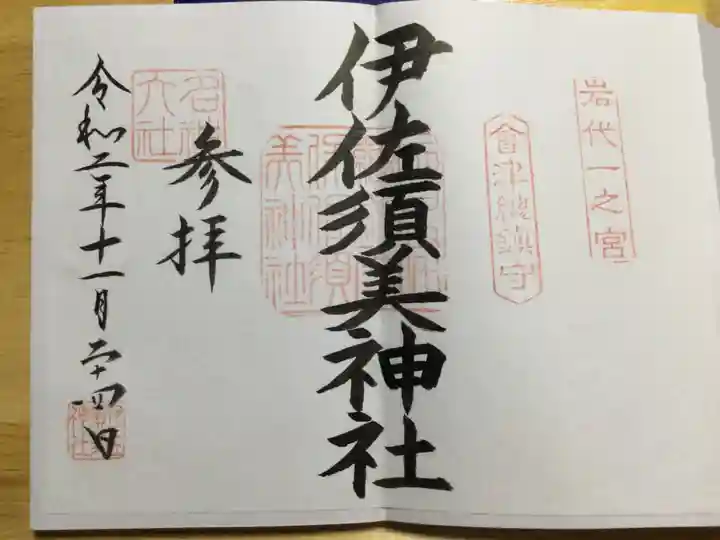 岩代一之宮
會津總鎮守
伊佐須美神社
参拝
名神大社
令和二年十一月二十四日